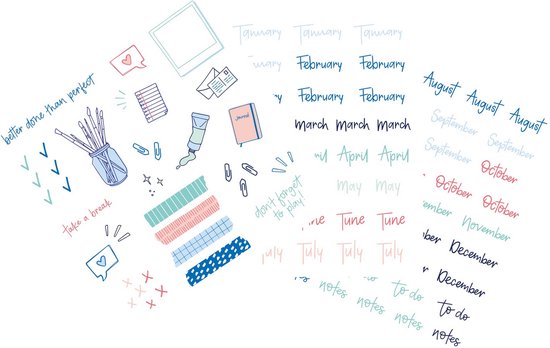 better done than perfect
take a break
Journal
don't forget
to play!
January January January
nuary January January
February February February
February February
March March March
il April April
May May
une June June
July July July
to do
notes notes notes
August August August
September September
September October
October October
November
December
December
to do
notes